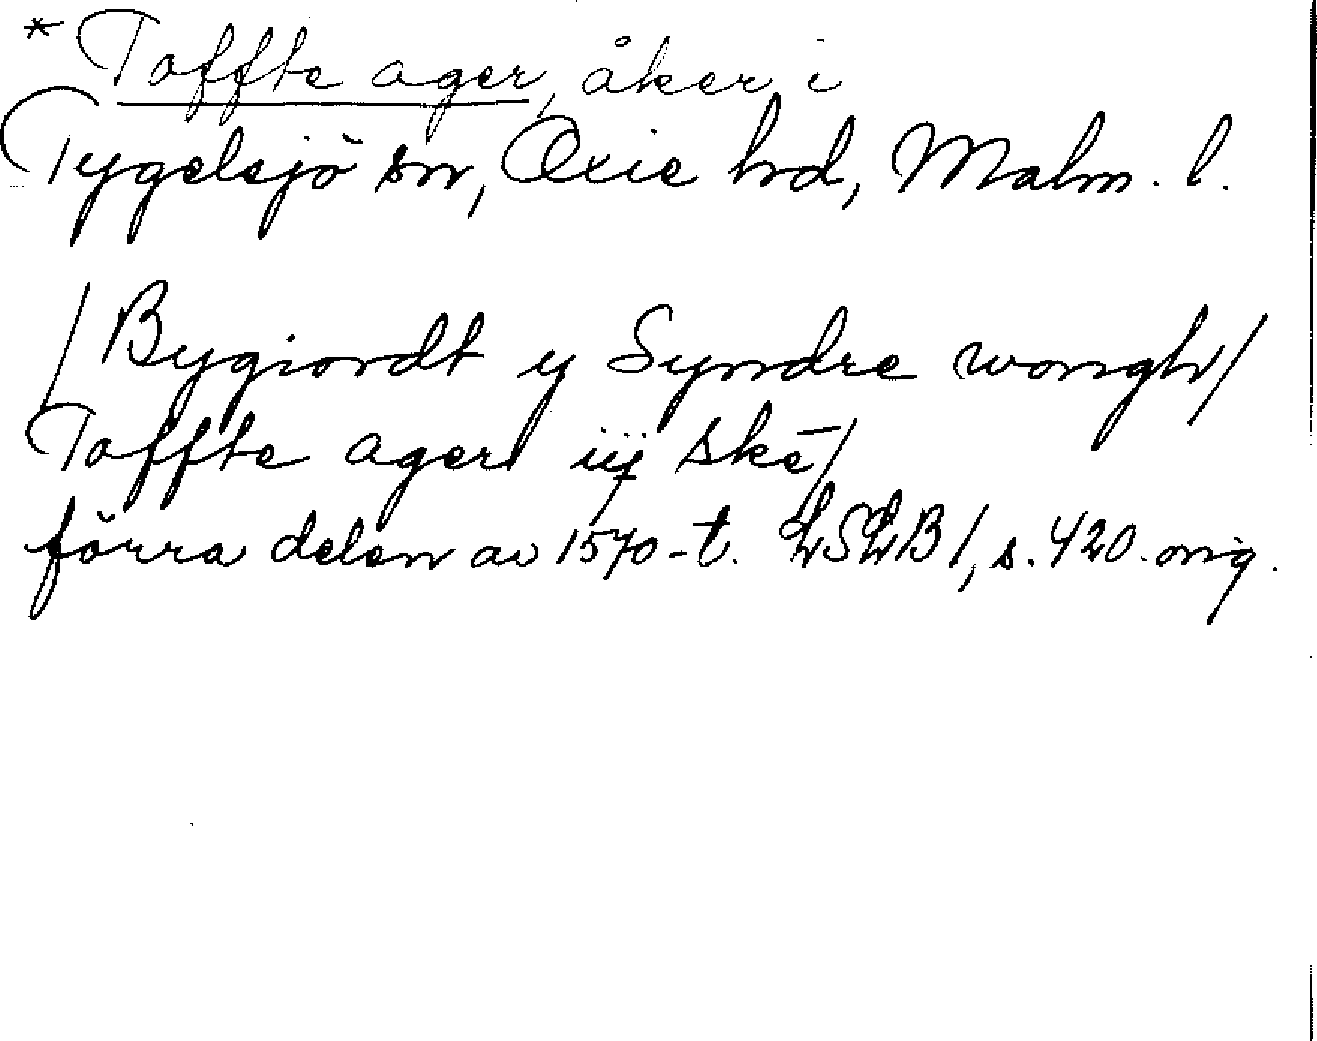 * Toffte ager, åker i
Tygelsjö sn, Oxie hd, Malm. l.
/Bygiordt y Syndre wongh/
Toffte ager iij skē/
förra delen av 1570-t. LSLB 1, s. 420. orig.